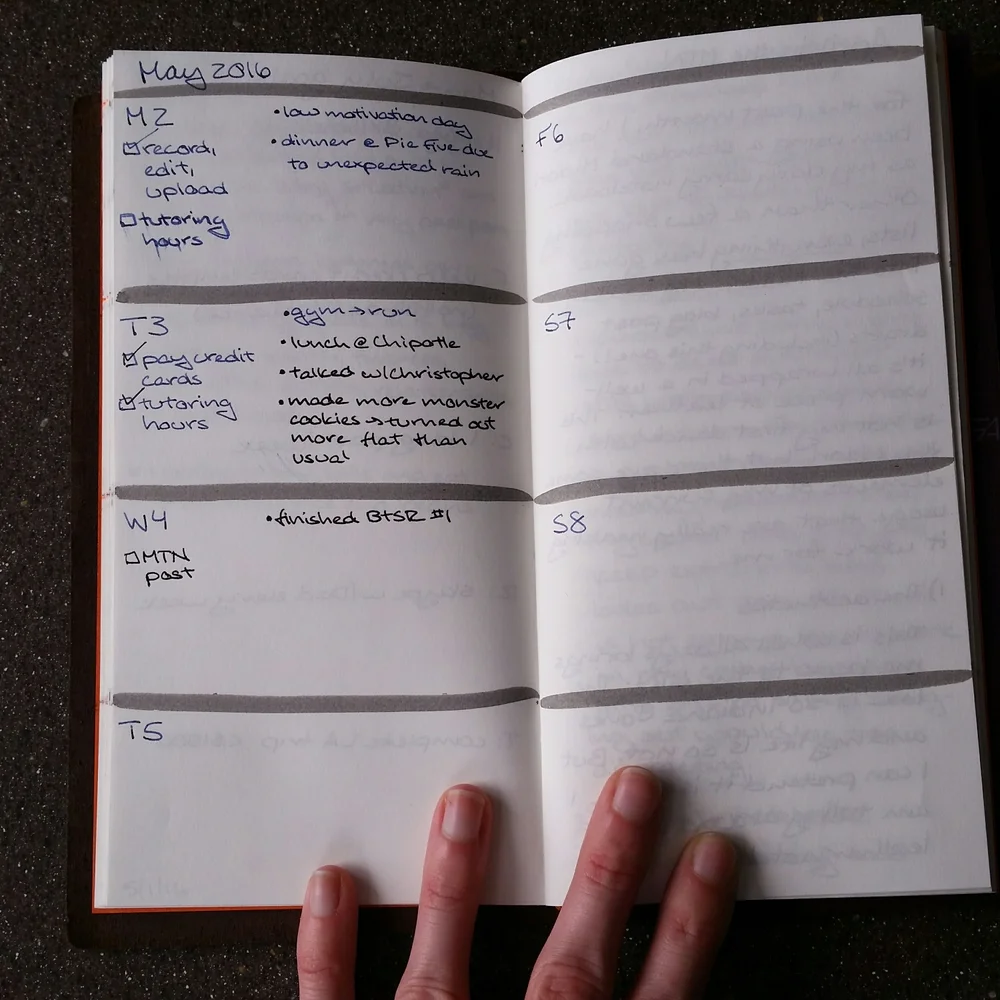 May 2016
M2
☑ record,
edit,
upload
☐ tutoring
hours
• low motivation day
• dinner @ Pie Five due
to unexpected rain
T3
☑ pay credit
cards
☑ tutoring
hours
• gym → run
• lunch @ Chipotle
• talked w/Christopher
• made more monster
cookies → turned out
more flat than
usual
W4
☐ MTN
post
• finished BtSR #1
T5
F6
S7
S8